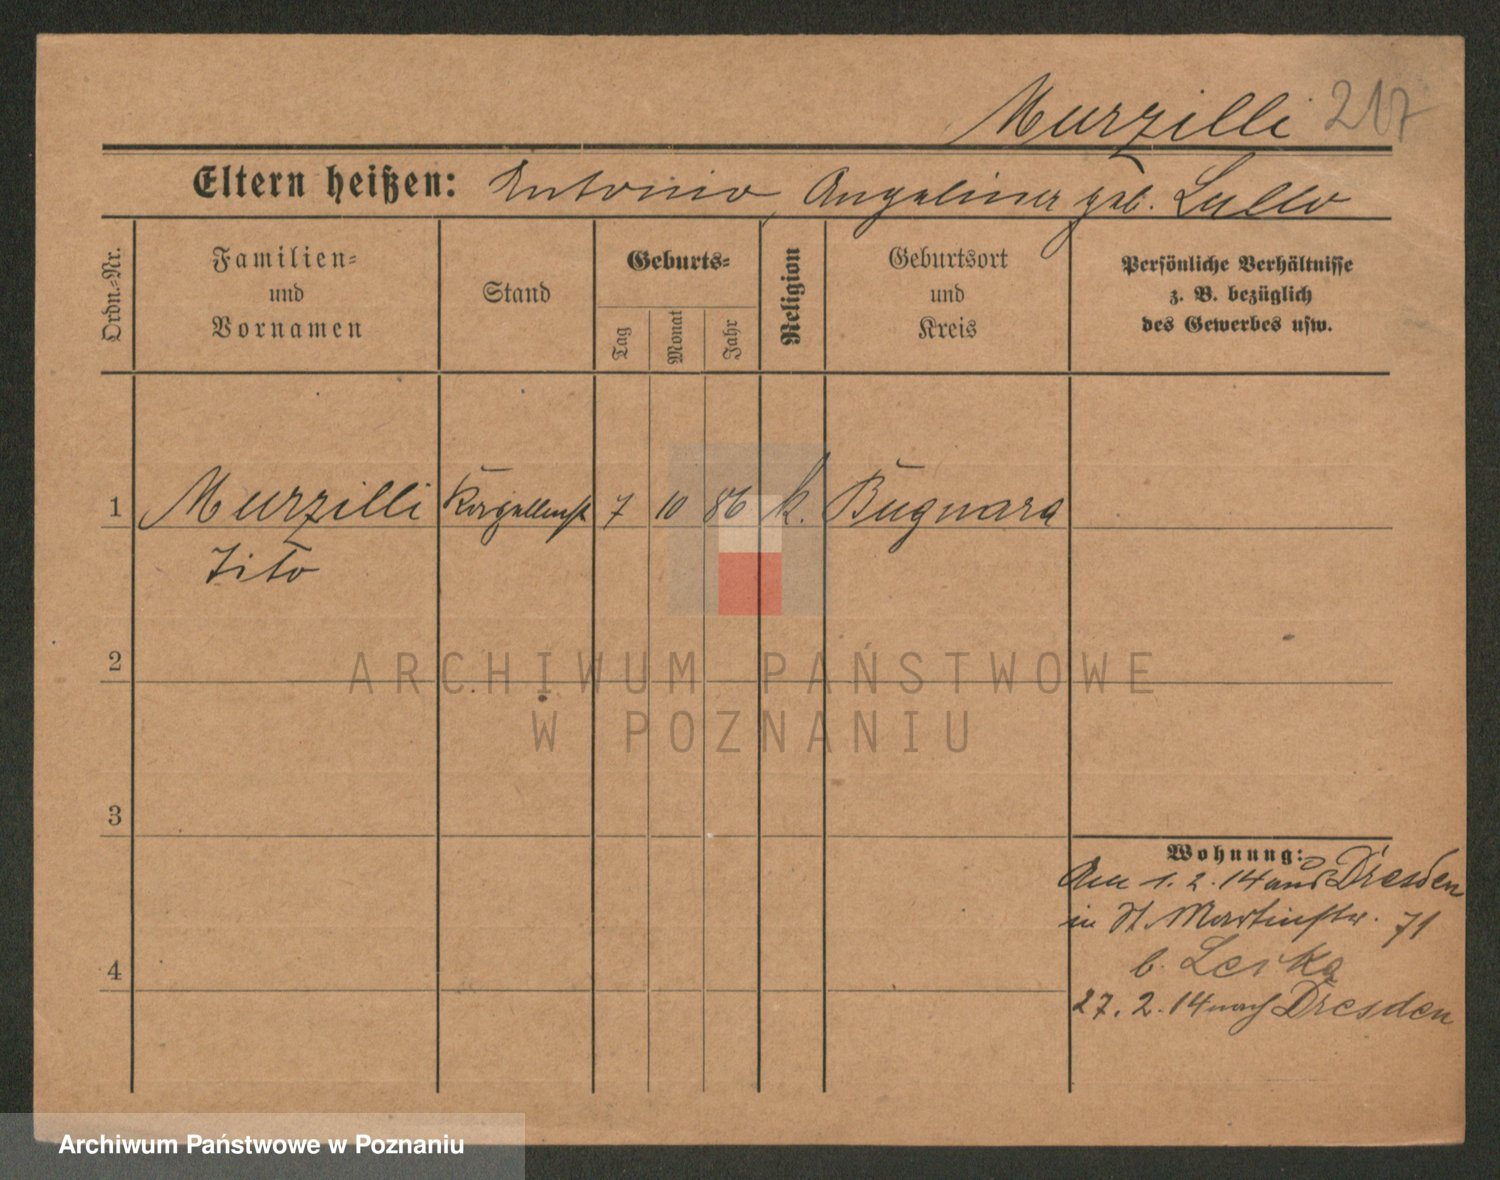 Murzilli 217
Eltern heißen: Antonio, Angelina geb. Lullo
Ordn.-Nr.
Familien-
und
Vornamen
Stand
Geburts-
Tag
Monat
Jahr
Religion
Geburtsort
und
Kreis
Persönliche Verhältnisse
z. B. bezüglich
des Gewerbes usw.
1 Murzilli 7 10 86 k. Bugnara
Tito
2
3
4
Wohnung:
Am 1. 2. 14 aus Dresden
in St. Martinstr. 71
b. Leska
27. 2. 14 nach Dresden
ARCHIWUM PAŃSTWOWE
W POZNANIU
Archiwum Państwowe w Poznaniu